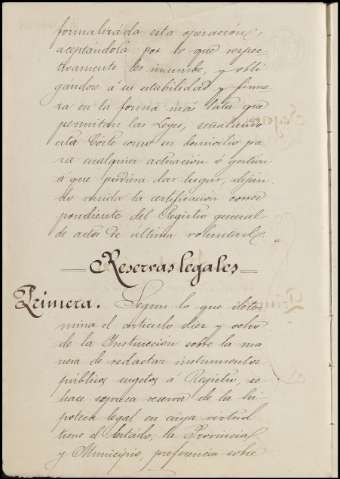 formalizada esta operacion,
aceptandola por lo que respec-
tivamente les incumbe, y obli-
gandose á su estabilidad y firme-
za en la forma mas util que
permitan las Leyes, señalando
esta Corte como su domicilio pa-
ra cualquier actuacion ó gestion
á que pudiera dar lugar,
la certificacion corres-
pondiente del Registro general
de actos de última voluntad.
Reservas legales
Primera. Segun lo que deter-
mina el artículo diez y ocho
de la Instruccion sobre la ma-
nera de redactar instrumentos
públicos sugetos á Registro, se
hace expresa reserva de la hi-
poteca legal en cuya virtud
tiene el Estado, la Provincia
y Municipio, preferencia sobre